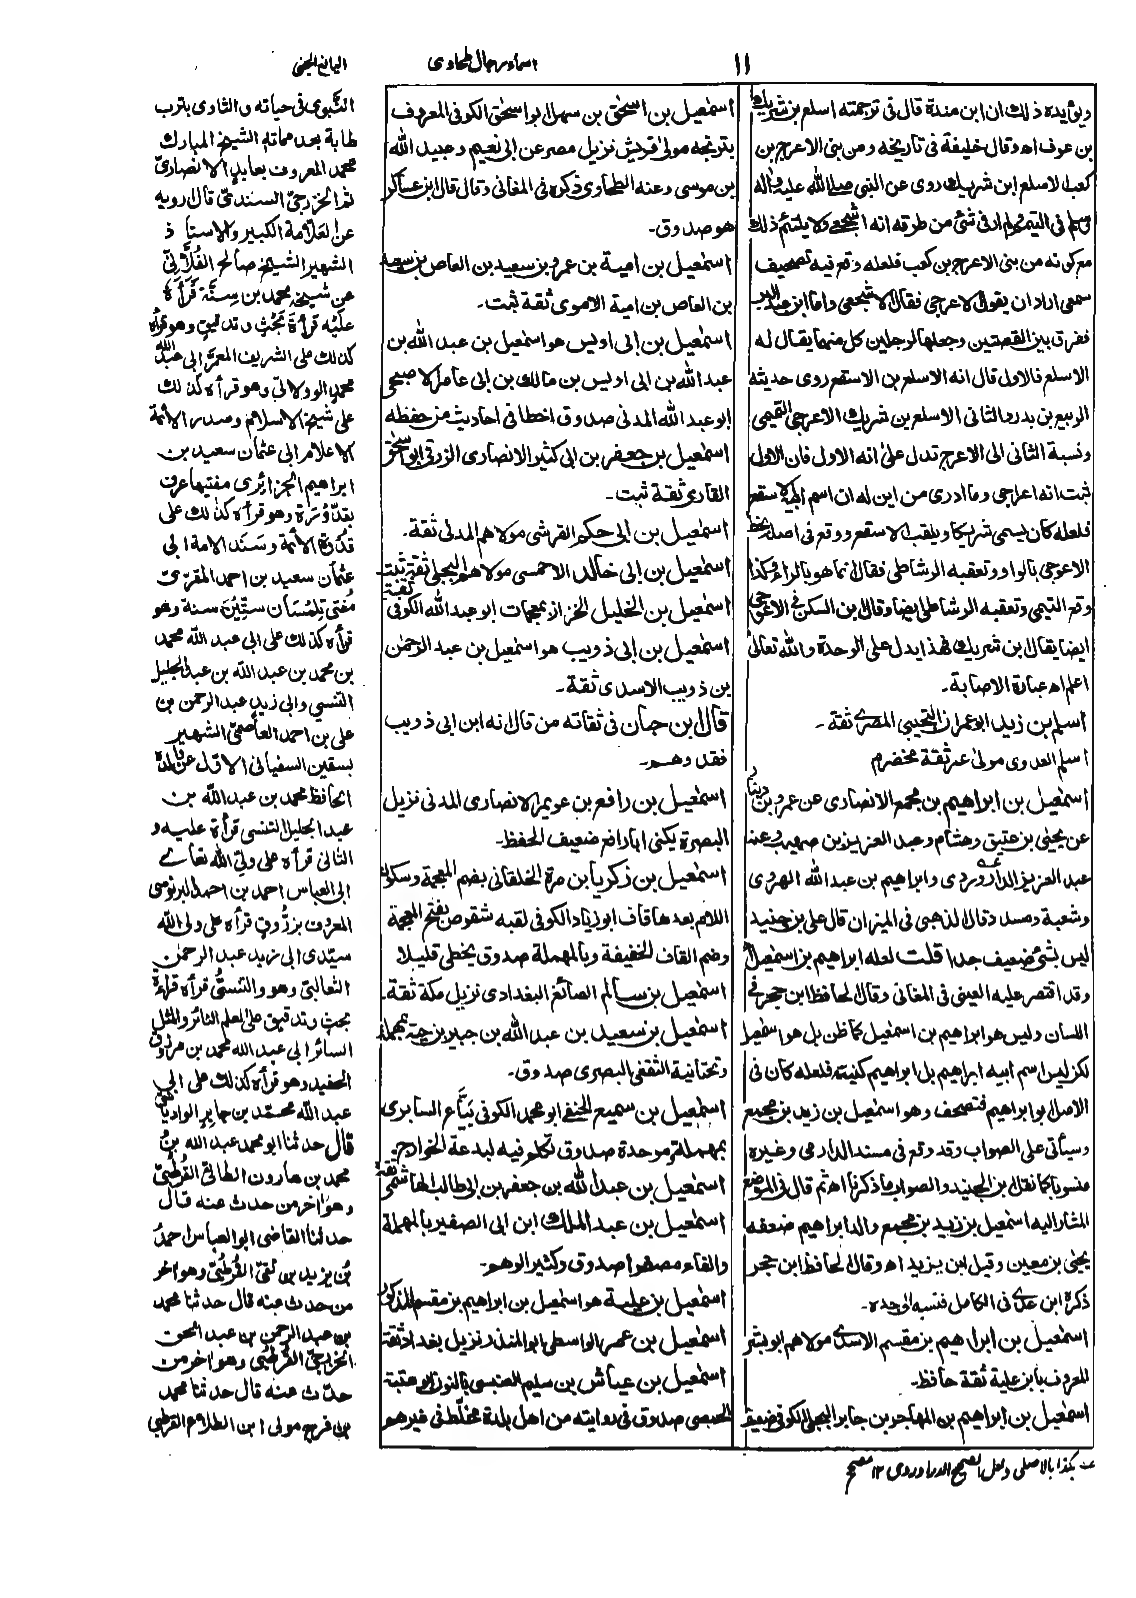 ١١
اسماء رجال طحاوى
اليانع الجنى
ويؤيده ذلك ان ابن مندة قال فى ترجمته اسلع بن شريك
بن عوف اه وقال خليفة فى تاريخه ومن بنى الاعرج بن
كعب الاسلع ابن شريك روى عن النبى صلى الله عليه واله
وسلم فى التيمم ولم ار فى شئ من طرقه انه اشجعى ولا يلتئم ذلك
مع كونه من بنى الاعرج بن كعب فلعله وقع فيه تصحيف
سمعى اراد ان يقول الاعرجى فقال الاشجعى واما ابن عبد البر
ففرق بين القصتين وجعلها لرجلين كل منهما يقال له
الاسلع فالاول قال انه الاسلع بن الاسقع روى حديثه
الربيع بن بدر والثانى الاسلع بن شريك الاعرجى التميمى
ونسبة الثانى الى الاعرج تدل على انه الاول فان الاول
ثبت انه اعرجى وما ادرى من اين له ان اسم ابيه الاسقع
فلعله كان يسمى شريكا ويلقب الاسقع ووقع فى اصله بخطه
الاعوجى بالواو وتعقبه الرشاطى فقال انما هو بالراء وكذا
وقع التيمى وتعقبه الرشاطى ايضا وقال بن السكن فى الاعوجى
ايضا يقال بن شريك فهذا يدل على الوحدة والله تعالى
اعلم اه عبارة الاصابة۔
اسلم بن زيد ابو عمران التجيبى المصرى ثقة ۔
اسلم العدوى مولى عمر ثقة مخضرم
اسمٰعيل بن ابراهيم بن مجمع الانصارى عن عمرو بن دينار
عن يحيى بن عتيق وهشام وعبد العزيز بن صهيب وعنه
عبد العزيز الداروردى وابراهيم بن عبد الله الهروى
وشعبة ومسدد قال الذهبى فى الميزان قال على بن جنيد
ليس بشئ ضعيف جدا قلت لعله ابراهيم بن اسمٰعيل
وقد اقتصر عليه العينى فى المغانى وقال الحافظ ابن حجر فى
اللسان وليس هو ابراهيم بن اسمٰعيل كما ظن بل هو اسمٰعيل
لكن ليس اسم ابيه ابراهيم بل ابراهيم كنيته فلعله كان فى
الاصل ابو ابراهيم فتصحف وهو اسمٰعيل بن زيد بن مجمع
وسيأتى على الصواب وقد وقع فى مسند الدارمى وغيره
منسوبا كما نقل بن الجنيد والصواب ما ذكرنا اه ثم قال فى الموضع
المشار اليه اسمٰعيل بن زيد بن مجمع والد ابراهيم ضعفه
يحيى بن معين وقيل ابن يزيد اه وقال الحافظ ابن حجر
ذكره ابن عدى فى الكامل فنسبه لجده۔
اسمٰعيل بن ابراهيم بن مقسم الاسدى مولاهم ابو بشر
المعروف بابن علية ثقة حافظ۔
اسمٰعيل بن ابراهيم بن المهاجر بن جابر البجلى الكوفى ضعيف
اسمٰعيل بن اسحٰق بن سهل ابو اسحٰق الكوفى المعروف
بترنجه مولى قريش نزيل مصر عن ابى نعيم وعبيد الله
بن موسى وعنه الطحاوى ذكره فى المغانى وقال قال ابن عساكر
هو صدوق۔
اسمٰعيل بن امية بن عمرو بن سعيد بن العاص بن سعيد
بن العاص بن امية الاموى ثقة ثبت۔
اسمٰعيل بن ابى اويس هو اسمٰعيل بن عبد الله بن
عبد الله بن ابى اويس بن مالك بن ابى عامر الاصبحى
ابو عبد الله المدنى صدوق اخطا فى احاديث من حفظه
اسمٰعيل بن جعفر بن ابى كثير الانصارى الزرقى ابو اسحٰق
القارى ثقة ثبت۔
اسمٰعيل بن ابى حكم القرشى مولاهم المدنى ثقة۔
اسمٰعيل بن ابى خالد الاحمسى مولاهم البجلى ثقة ثبت
اسمٰعيل بن الخليل الخزاز بمعجمات ابو عبد الله الكوفى ثقة
اسمٰعيل بن ابى ذويب هو اسمٰعيل بن عبد الرحمٰن
بن ذويب الاسدى ثقة۔
قال ابن حبان فى ثقاته من قال انه ابن ابى ذويب
فقد وهم۔
اسمٰعيل بن رافع بن عويمر الانصارى المدنى نزيل
البصرة يكنى ابا رافع ضعيف الحفظ۔
اسمٰعيل بن زكريا بن مرة الخلقانى بضم المعجمة وسكون
اللام بعدها قاف ابو زياد الكوفى لقبه شقوص بفتح المعجمة
وضم القاف الخفيفة وبالمهملة صدوق يخطى قليلا
اسمٰعيل بن سالم الصائغ البغدادى نزيل مكة ثقة۔
اسمٰعيل بن سعيد بن عبد الله بن جبير بن حية بمهملة
وتحتانية الثقفى البصرى صدوق۔
اسمٰعيل بن سميع الحنفى ابو محمد الكوفى بَيَّاع السابرى
بمهملة وموحدة صدوق تكلم فيه لبدعة الخوارج
اسمٰعيل بن عبد الله بن جعفر بن ابى طالب الهاشمى ثقة
اسمٰعيل بن عبد الملك ابن ابى الصفير بالمهملة
والفاء مصغرا صدوق وكثير الوهم۔
اسمٰعيل بن علية هو اسمٰعيل بن ابراهيم بن مقسم المذكور
اسمٰعيل بن عمر الواسطى ابو المنذر نزيل بغداد ثقة
اسمٰعيل بن عياش بن سليم العنسى بالنون ابو عتبة
الحمصى صدوق فى روايته من اهل بلدة مخلّط فى غيرهم
النّبوى فى حياته والثاوى بترب
طابة بعد مماته الشيخ المبارك
محمد المعروف بعابد الانصارى
ثم الخزرجىّ السندىّ قال رويه
عن العلامة الكبير والاستاذ
الشهير الشيخ صالح الفُلَّانىّ
عن شيخه محمد بن سِنَّة قرأة
عليه قرأة بحث وتدقيق وهو قرأه
كذلك على الشريف المعمّر ابى عبد الله
محمد الوولاتى وهو قرأه كذلك
على شيخ الاسلام وصدر الائمة
الاعلام ابى عثمان سعيد بن
ابراهيم الجزائرى مفتيها عرف
بقدّورة وهو قرأه كذلك على
قدوة الائمة وسند الامة ابى
عثمان سعيد بن احمد المقرىّ
مفتى تلمسان ستّين سنة وهو
قرأه كذلك على ابى عبد الله محمد
بن محمد بن عبد الله بن عبد الجليل
التنسى وابى زيد عبد الرحمن بن
على بن احمد العاصمىّ الشهير
بسقين السفيانى الاول عن والده
الحافظ محمد بن عبد الله بن
عبد الجليل التنسى قرأة عليه و
الثانى قرأه على ولىّ الله تعالى
ابى العباس احمد بن احمد البرنوسى
المعروف بزرّوق قرأه على ولى الله
سيّدى ابى زيد عبد الرحمن
الثعالبىّ وهو والتنسىّ قرأه قرأة
بحث وتدقيق على العلم الثائر والمثل
السائر ابى عبد الله محمد بن مرزوق
الحفيد وهو قرأه كذلك على ابى
عبد الله محمد بن جابر الواديآشى
قال حدثنا ابو محمد عبد الله بن
محمد بن هارون الطائى القرطبىّ
وهو اخر من حدث عنه قال
حدثنا القاضى ابو العباس احمد
بن يزيد بن بقىّ القرطبىّ وهو اخر
من حدث عنه قال حدثنا محمد
بن عبد الرحمن بن عبد الحق
الخزرجىّ القرطبى وهو اخر من
حدّث عنه قال حدثنا محمد
بن فرج مولى ابن الطلاع القرطبى
عه كذا بالاصل ولعل الصحيح الدراوردى ١٢ مصحح